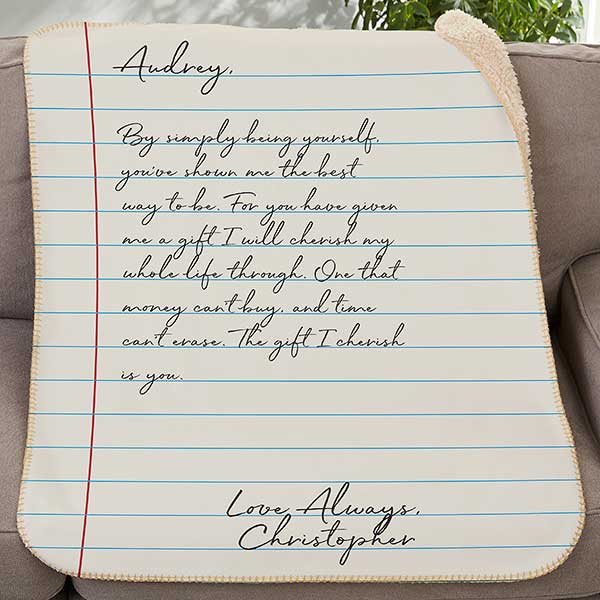 Audrey,
By simply being yourself,
you've shown me the best
way to be. For you have given
me a gift I will cherish my
whole life through. One that
money can't buy, and time
can't erase. The gift I cherish
is you.
Love Always,
Christopher